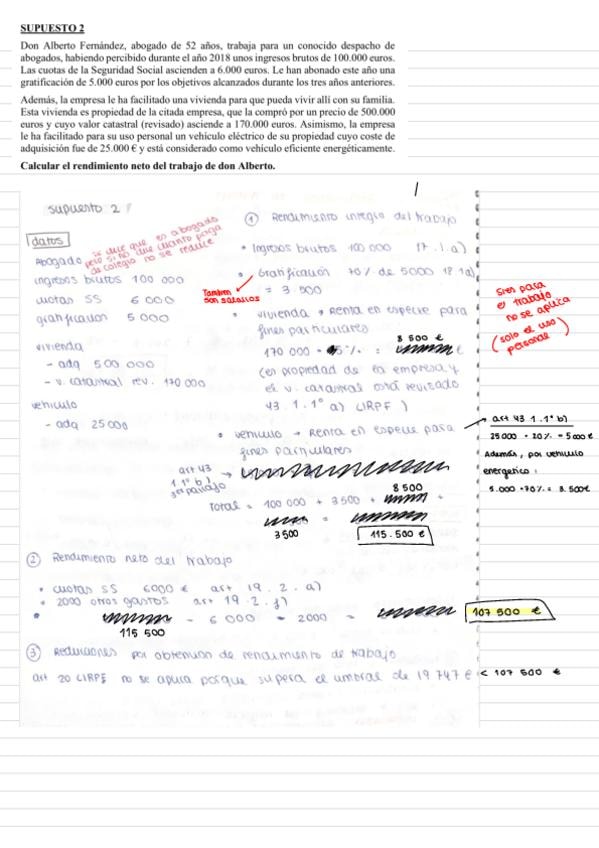 SUPUESTO 2
Don Alberto Fernández, abogado de 52 años, trabaja para un conocido despacho de
abogados, habiendo percibido durante el año 2018 unos ingresos brutos de 100.000 euros.
Las cuotas de la Seguridad Social ascienden a 6.000 euros. Le han abonado este año una
gratificación de 5.000 euros por los objetivos alcanzados durante los tres años anteriores.
Además, la empresa le ha facilitado una vivienda para que pueda vivir allí con su familia.
Esta vivienda es propiedad de la citada empresa, que la compró por un precio de 500.000
euros y cuyo valor catastral (revisado) asciende a 170.000 euros. Asimismo, la empresa
le ha facilitado para su uso personal un vehículo eléctrico de su propiedad cuyo coste de
adquisición fue de 25.000 € y está considerado como vehículo eficiente energéticamente.
Calcular el rendimiento neto del trabajo de don Alberto.
supuesto 2
datos
se dice que es abogado
pero si no dice cuanto paga
de colegio no se reduce
Abogado
ingresos brutos 100 000
cuotas SS 6 000
gratificacion 5 000
vivienda
- adq 500 000
- v. catastral rev. 170 000
vehiculo
- adq 25 000
1 Rendimiento integro del trabajo
• Ingresos brutos 100 000 17.1.a)
• Gratificación 70% de 5000 18 1a)
= 3.500
También
son salarios
• vivienda → Renta en especie para
fines particulares
8 500 €
170 000 · 5% =
(en propiedad de la empresa y
el v. catastral está revisado
43.1.1º a) LIRPF)
• vehiculo → Renta en especie para
fines particulares
art 43
1.1º b)
3er parrafo
8 500
Total = 100 000 + 3500 +
3 500
115.500 €
Si es para
el trabajo
no se aplica
(solo el uso
personal)
art 43 1.1º b)
25.000 · 20% = 5 000 €
Además, por vehiculo
energetico:
5.000 · 70% = 3.500€
2 Rendimiento neto del trabajo
• cuotas SS 6000 € art 19.2.a)
• 2000 otros gastos art 19.2.f)
• - 6 000 - 2000 = 107 500 €
115 500
3 Reducciones por obtencion de rendimiento de trabajo
art 20 LIRPF no se aplica porque supera el umbral de 19 747 € < 107 500 €